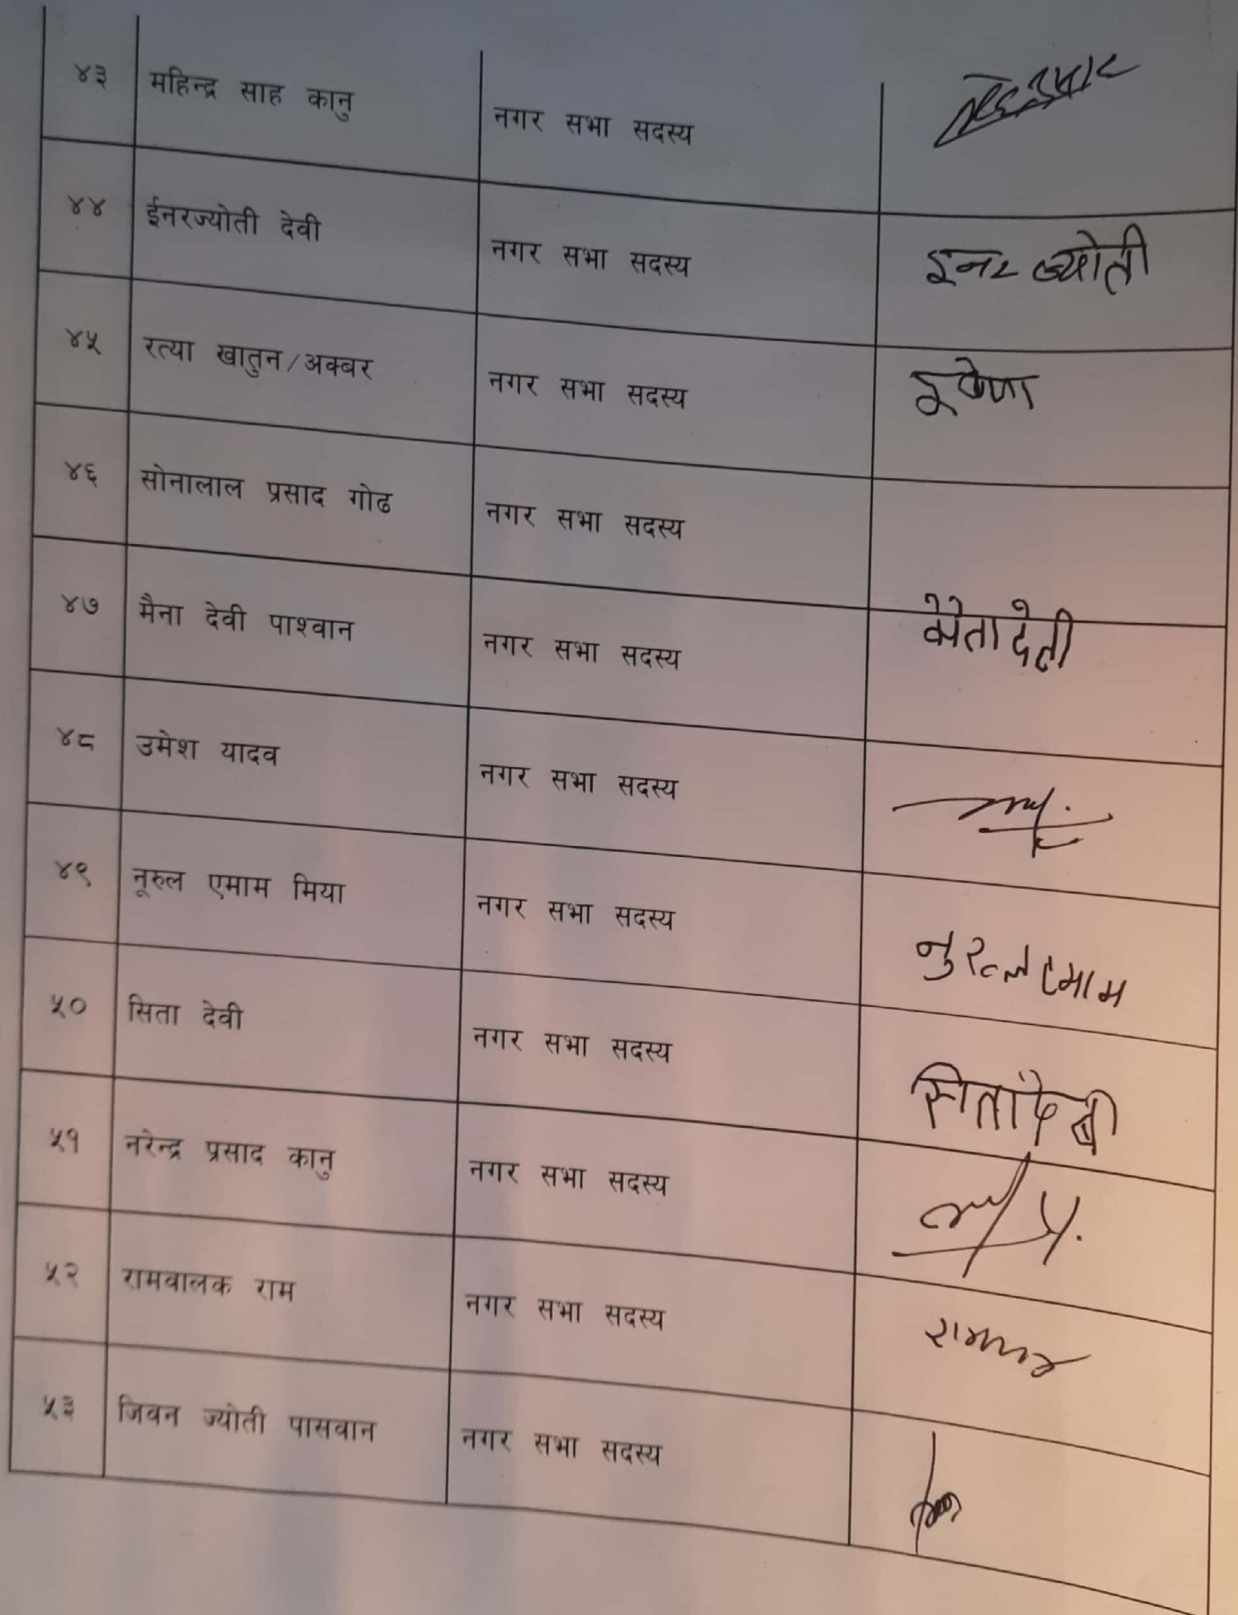 ४३ महिन्द्र साह कानु नगर सभा सदस्य
४४ ईनरज्योती देवी नगर सभा सदस्य इनर ज्योती
४५ रत्या खातुन/अक्बर नगर सभा सदस्य
४६ सोनालाल प्रसाद गोढ नगर सभा सदस्य
४७ मैना देवी पाश्वान नगर सभा सदस्य
४८ उमेश यादव नगर सभा सदस्य
४९ नूरुल एमाम मिया नगर सभा सदस्य
५० सिता देवी नगर सभा सदस्य सिता देवी
५१ नरेन्द्र प्रसाद कानु नगर सभा सदस्य
५२ रामवालक राम नगर सभा सदस्य
५३ जिवन ज्योती पासवान नगर सभा सदस्य